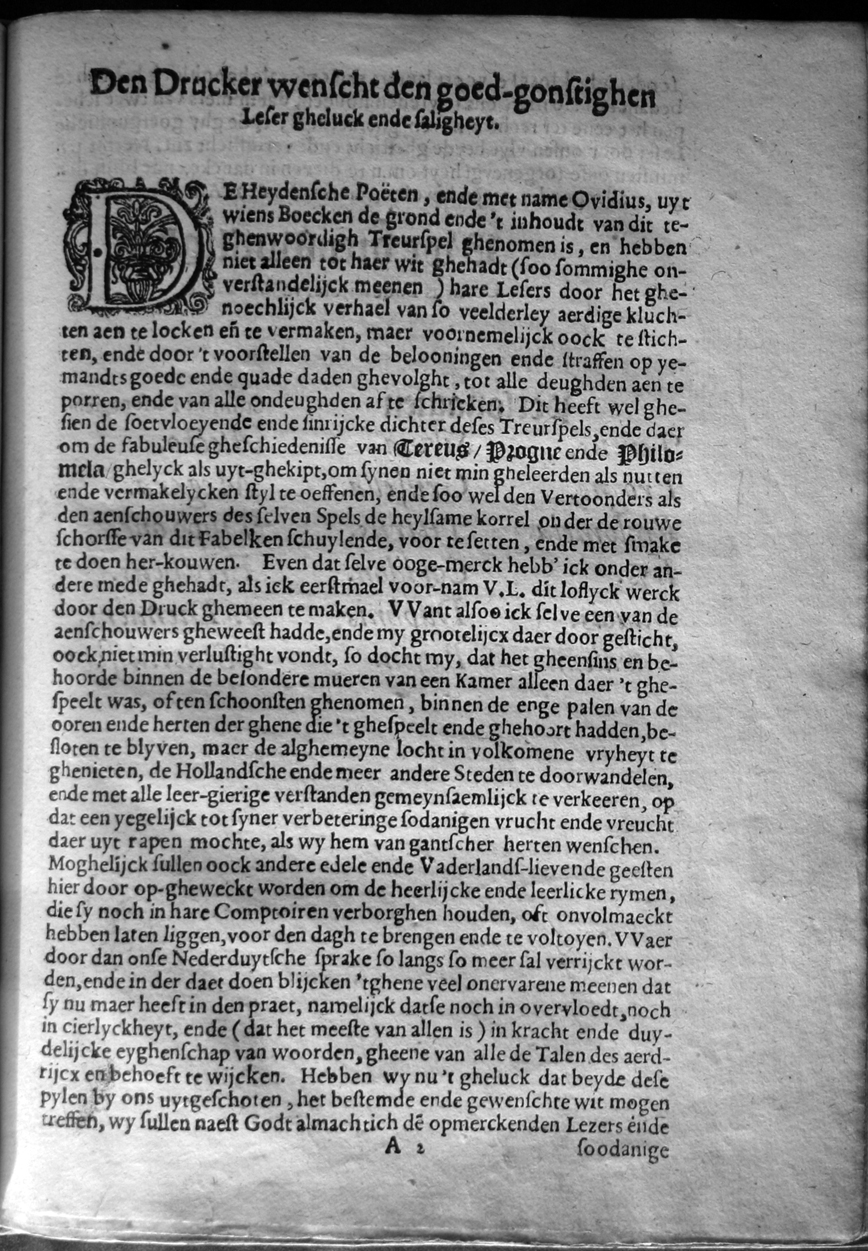 Den Drucker wenſcht den goed-gonſtighen
Leſer gheluck ende ſaligheyt.
DE Heydenſche Poëten, ende met name Ovidius, uyt
wiens Boecken de grond ende 't inhoudt van dit te-
ghenwoordigh Treurſpel ghenomen is, en hebben
niet alleen tot haer wit ghehadt (ſoo ſommighe on-
verſtandelijck meenen ) hare Leſers door het ghe-
noechlijck verhael van ſo veelderley aerdige kluch-
ten aen te locken eñ te vermaken, maer voornemelijck oock te ſtich-
ten, ende door 't voorſtellen van de belooningen ende ſtraffen op ye-
mandts goede ende quade daden ghevolght, tot alle deughden aen te
porren, ende van alle ondeughden af te ſchricken. Dit heeft wel ghe-
ſien de ſoetvloeyende ende ſinrijcke dichter deſes Treurſpels, ende daer
om de fabuleuſe gheſchiedeniſſe van Tereus / Progne ende Philo-
mela ghelyck als uyt-ghekipt, om ſynen niet min gheleerden als nutten
ende vermakelycken ſtyl te oeffenen, ende ſoo wel den Vertoonders als
den aenſchouwers des ſelven Spels de heylſame korrel onder de rouwe
ſchorſſe van dit Fabelken ſchuylende, voor te ſetten, ende met ſmake
te doen her-kouwen. Even dat ſelve ooge-merck hebb' ick onder an-
dere mede ghehadt, als ick eerſtmael voor-nam V.L. dit loflyck werck
door den Druck ghemeen te maken. VVant alſoo ick ſelve een van de
aenſchouwers gheweeſt hadde, ende my grootelijcx daer door geſticht,
oock niet min verluſtight vondt, ſo docht my, dat het gheenſins en be-
hoorde binnen de beſondere mueren van een Kamer alleen daer 't ghe-
ſpeelt was, of ten ſchoonſten ghenomen, binnen de enge palen van de
ooren ende herten der ghene die 't gheſpeelt ende ghehoort hadden, be-
ſloten te blyven, maer de alghemeyne locht in volkomene vryheyt te
ghenieten, de Hollandſche ende meer andere Steden te doorwandelen,
ende met alle leer-gierige verſtanden gemeynſaemlijck te verkeeren, op
dat een yegelijck tot ſyner verbeteringe ſodanigen vrucht ende vreucht
daer uyt rapen mochte, als wy hem van gantſcher herten wenſchen.
Moghelijck ſullen oock andere edele ende Vaderlandſ-lievende geeſten
hier door op-gheweckt worden om de heerlijcke ende leerlicke rymen,
die ſy noch in hare Comptoiren verborghen houden, oft onvolmaeckt
hebben laten liggen, voor den dagh te brengen ende te voltoyen. VVaer
door dan onſe Nederduytſche ſprake ſo langs ſo meer ſal verrijckt wor-
den, ende in der daet doen blijcken 'tghene veel onervarene meenen dat
ſy nu maer heeft in den praet, namelijck datſe noch in overvloedt, noch
in cierlyckheyt, ende ( dat het meeſte van allen is ) in kracht ende duy-
delijcke eyghenſchap van woorden, gheene van alle de Talen des aerd-
rijcx en behoeft te wijcken. Hebben wy nu 't gheluck dat beyde deſe
pylen by ons uytgeſchoten, het beſtemde ende gewenſchte wit mogen
treffen, wy ſullen naeſt Godt almachtich dẽ opmerckenden Lezers ende
A 2 ſoodanige